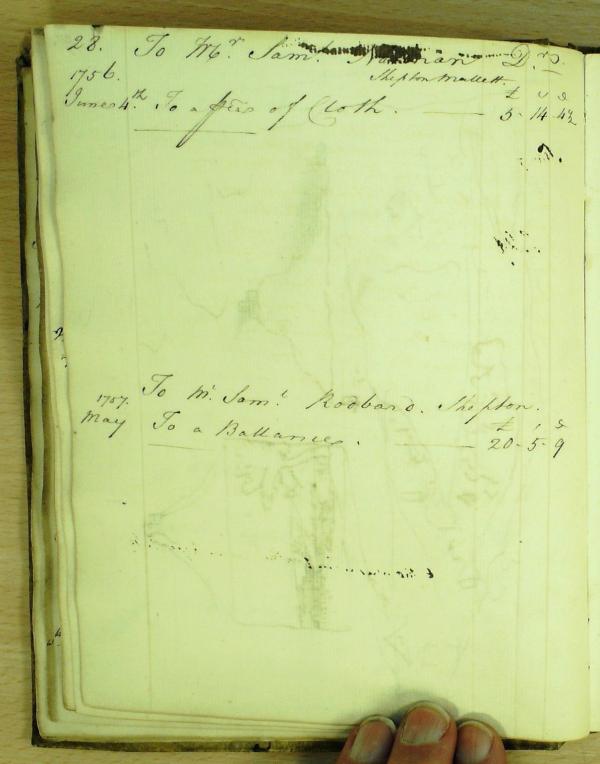 28. To Mr. Saml. Dr.
1756. Shepton Mallett.
£ s d
June 4th. To a pés of Cloth. 5 - 14 - 4½
To Mr. Saml. Rodbard. Shepton.
1757. £ s d
May To a Ballances. 20 - 5 - 9